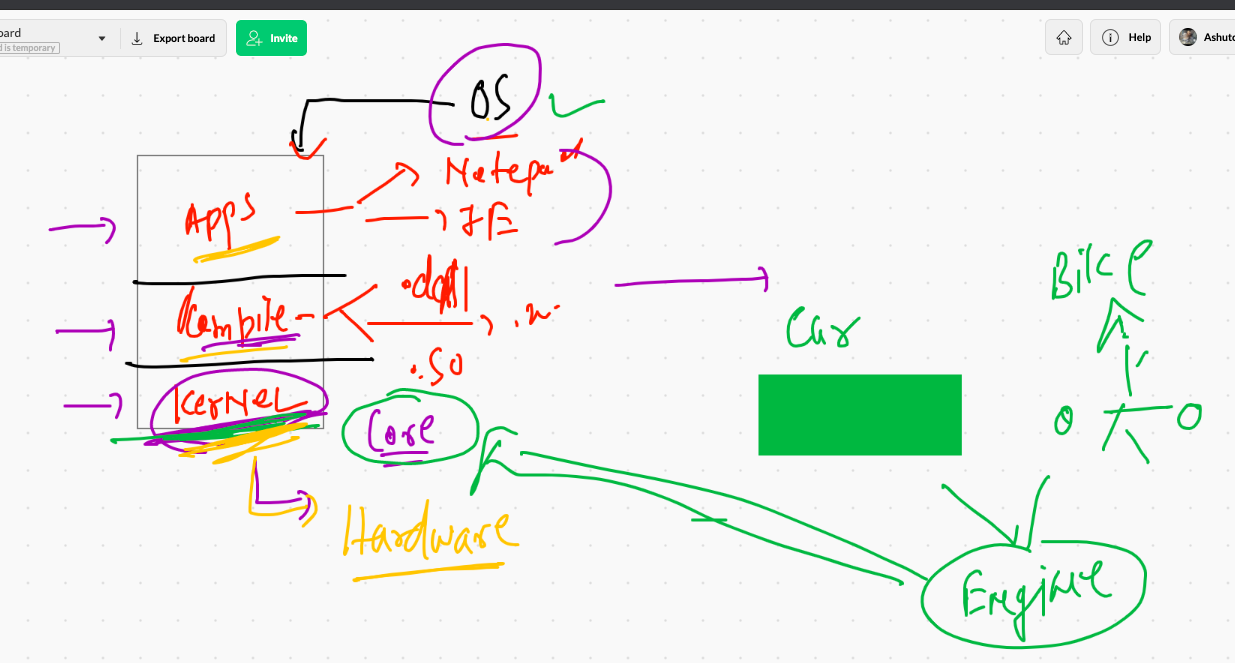 oard
d is temporary
Export board
Invite
Help
Ashuto
OS
Apps
Notepad
IE
Compile
.so
KerNeL
Core
Hardware
Car
Bike
Engine